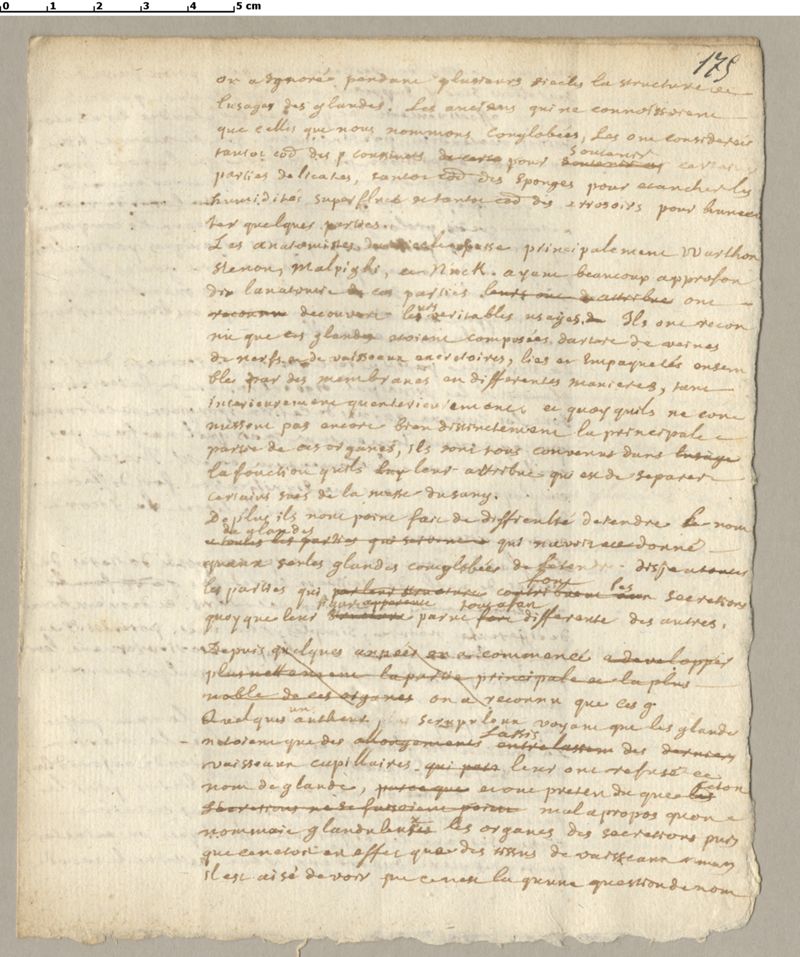 0 1 2 3 4 5 cm
175
on a ignoré pendant plusieurs siecles la structure et
lusages des glandes. Les anciens qui ne connoissoient
que celles que nous nommons conglobées, les ont considerées
tantot des p. coussinets pour soutenir certaines
parties delicates, tantot des eponges pour etancher les
humidités superflues et tantot des arrosoirs pour humec
ter quelques parties.
Les anatomistes principalement Warthon
Stenon, Malpighi, et Nuck. ayant beaucoup approfon
di lanatomie de ces parties leurs ont attribué ont
reconnu decouvert leurs veritables usages. Ils ont recon
nu que ces glandes etoient composées dartere de veines
de nerfs et de vaisseaux excretoires, liés et empaquetés ensem
bles par des membranes en differentes manieres, tant
interieurement quexterieurement, et quoy quils ne conn
nissent pas encore bien distinctement la principale
partie de ces organes, ils sont tous convenus dans lusage
la fonction quils leur attribue qui est de separer
certains sucs de la masse du sang.
De plus ils nont point fait de difficulté detendre le nom
de glandes
a toutes les parties qui servent a qui navoit eté donné
quaux seules glandes conglobées de letendre disje a toutes
les parties qui par leur structure contribuent aux secretions
font les
quoyque leur structure parut fort differente des autres.
figure apparente tout a fait
Depuis quelques années on a commencé a developper
plus nettement la partie principale et la plus
noble de ces organes on a reconnu que ces g.
Quelques un autheurs scrupuleux voyant que les glandes
netoient que des allongements entrelassem des derniers
lassis
vaisseaux capillaires, qui par leur ont refusé ce
nom de glande, parce que et ont pretendu que les
secretions ne se faisoient point mal a propos quon
nommait glanduleuses les organes des secretions puis
que ce netoit en effet que des tissus de vaisseaux
il est aisé de voir que ce nest la quune question de nom